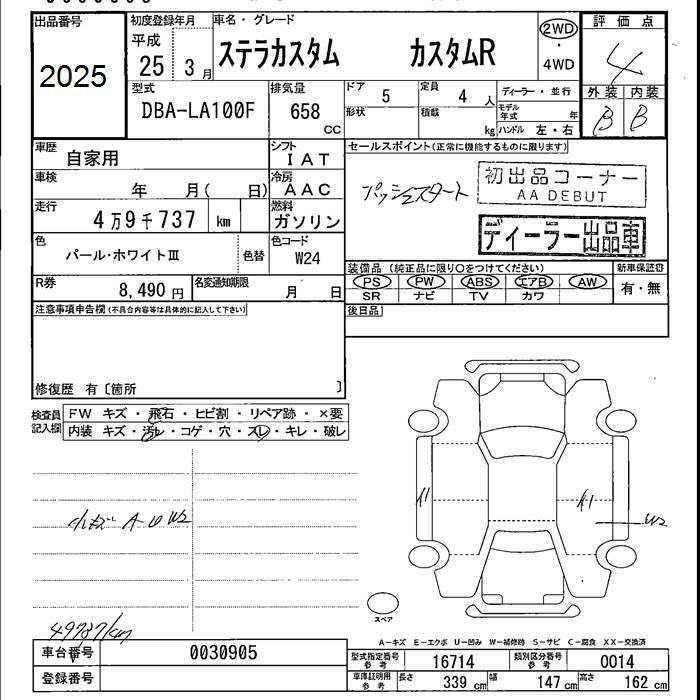 出品番号 初度登録年月 車名・グレード 2WD 評価点
2025 平成 25 3月 ステラカスタム カスタムR ・ 4
4WD
型式 排気量 ドア 5 定員 4 人 ディーラー・並行 外装 内装
DBA-LA100F 658 CC 形状 積載 kg モデル年式 年 B B
ハンドル 左・右
車歴 自家用 シフト IAT セールスポイント(正常に機能するものに限ります)
車検 年 月( 日) 冷房 AAC プッシュスタート 初出品コーナー
AA DEBUT
走行 4万9千737 km 燃料 ガソリン ディーラー出品車
色 パール・ホワイトⅢ 色替 色コード W24
装備品(純正品に限り○をつけてください) 新車保証書
R券 8,490円 名変通知期限 月 日 PS PW ABS エアB AW 有・無
SR ナビ TV カワ
注意事項申告欄(不具合内容等は具体的に記入して下さい) 後日品
修復歴 有〔箇所 〕
検査員記入欄 FW キズ・飛石・ヒビ割・リペア跡・×要
内装 キズ・汚レ・コゲ・穴・スレ・キレ・破レ
A U W2
A1 A1 W2
スペア
49737km
A-キズ E-エクボ U-凹み W-補修跡 S-サビ C-腐食 XX-交換済
車台番号 0030905 型式指定番号参考 16714 類別区分番号参考 0014
登録番号 車庫証明用参考 長さ 339cm 幅 147cm 高さ 162cm